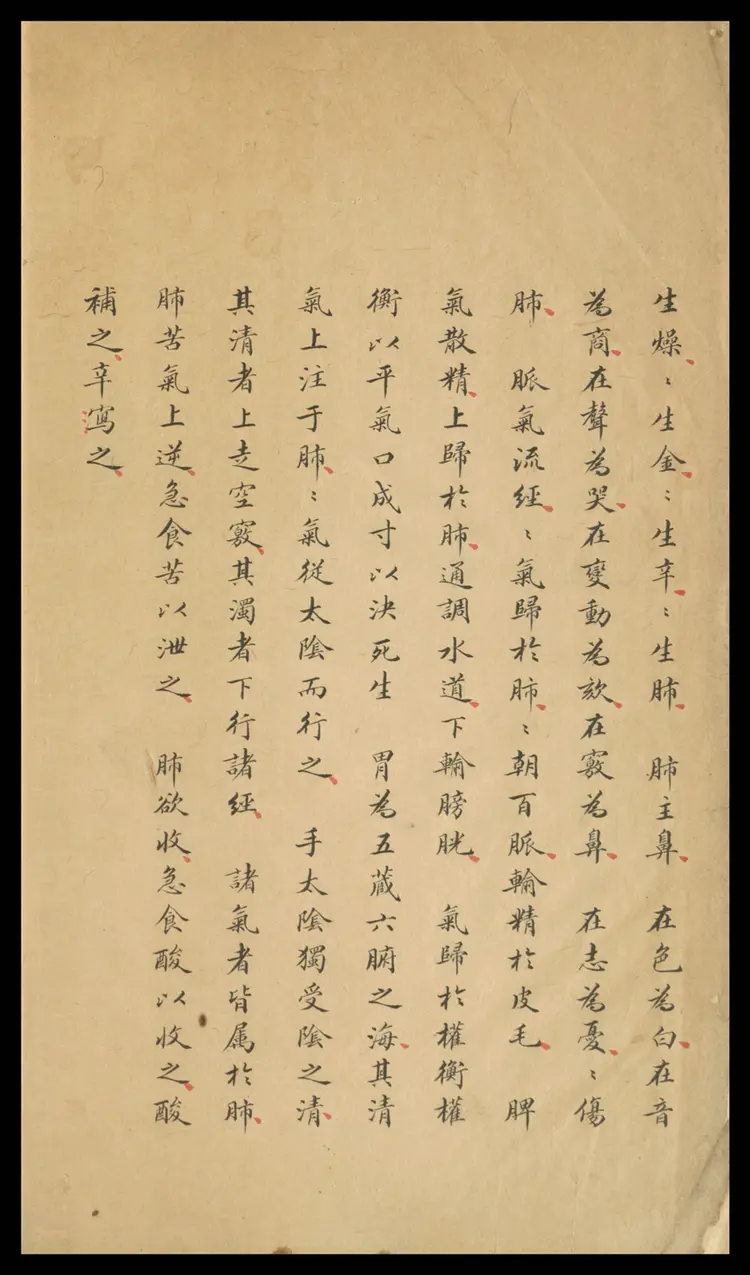 生燥、〻生金、〻生辛、〻生肺、 肺主鼻、 在色為白、在音
為商、在聲為哭、在變動為欬、在竅為鼻、 在志為憂、〻傷
肺、 脈氣流經、〻氣歸於肺、〻朝百脈、輸精於皮毛、 脾
氣散精、上歸於肺、通調水道、下輸膀胱、 氣歸於權衡權
衡以平氣口成寸以決死生 胃為五藏六腑之海、其清
氣上注于肺、〻氣從太陰而行之、 手太陰獨受陰之清、
其清者上走空竅、其濁者下行諸經、 諸氣者皆属於肺、
肺苦氣上逆、急食苦以泄之、 肺欲收、急食酸以收之、酸
補之、辛寫之、